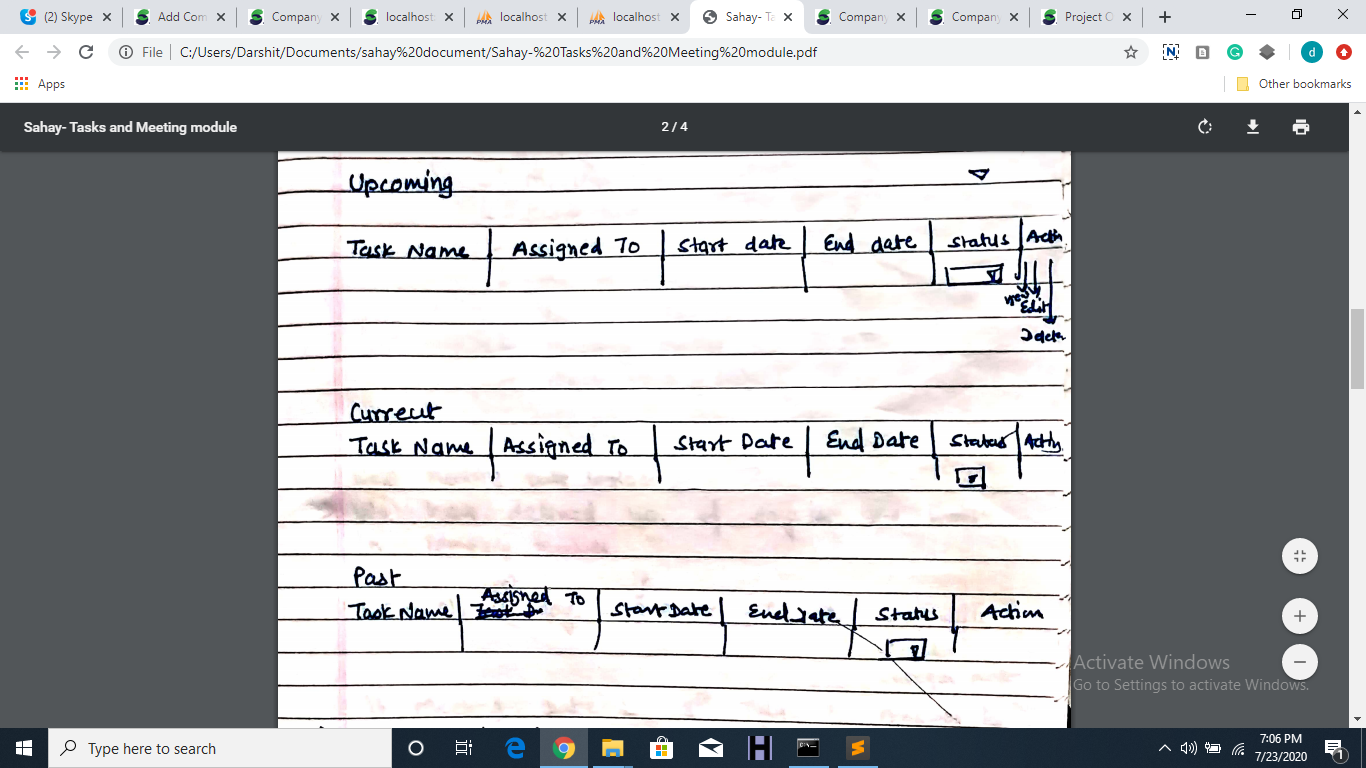 (2) Skype
Add Com
Company
localhost
localhost
localhost
Sahay- Ta
Company
Company
Project O
File
C:/Users/Darshit/Documents/sahay%20document/Sahay-%20Tasks%20and%20Meeting%20module.pdf
Apps
Other bookmarks
Sahay- Tasks and Meeting module
2 / 4
Upcoming
Task Name Assigned To Start date End date Status Actn
Edit
Current
Task Name Assigned To Start Date End Date Status
Past
Assigned To
Task Name Start Date End Date Status Action
Activate Windows
Go to Settings to activate Windows.
Type here to search
7:06 PM
7/23/2020
1